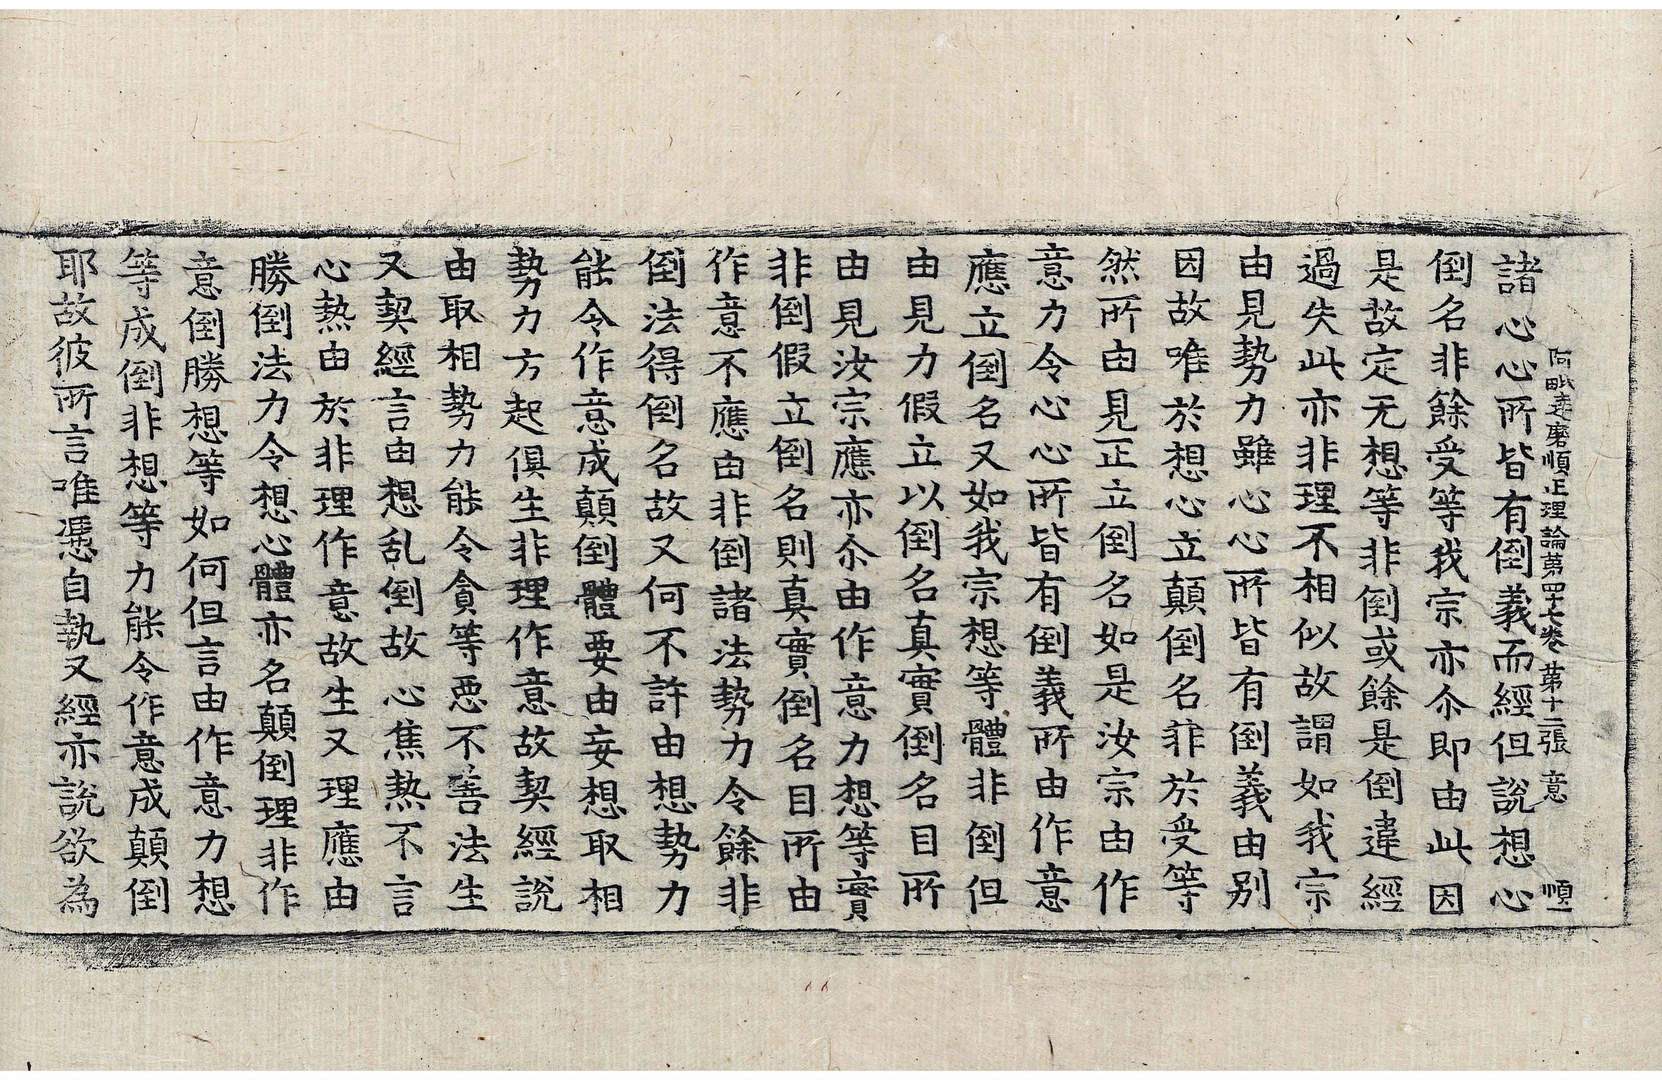 阿毗達磨順正理論第四十七卷 第十二張 意 順一
諸心心所皆有倒義而經但說想心
倒名非餘受等我宗亦尒即由此因
是故定无想等非倒或餘是倒違經
過失此亦非理不相似故謂如我宗
由見勢力雖心心所皆有倒義由别
因故唯於想心立顛倒名非於受等
然所由見正立倒名如是汝宗由作
意力令心心所皆有倒義所由作意
應立倒名又如我宗想等體非倒但
由見力假立以倒名真實倒名目所
由見汝宗應亦尒由作意力想等實
非倒假立倒名則真實倒名目所由
作意不應由非倒諸法勢力令餘非
倒法得倒名故又何不許由想勢力
能令作意成顛倒體要由妄想取相
勢力方起俱生非理作意故契經說
由取相勢力能令貪等惡不善法生
又契經言由想乱倒故心焦热不言
心热由於非理作意故生又理應由
勝倒法力令想心體亦名顛倒理非作
意倒勝想等如何但言由作意力想
等成倒非想等力能令作意成顛倒
耶故彼所言唯憑自執又經亦說欲為